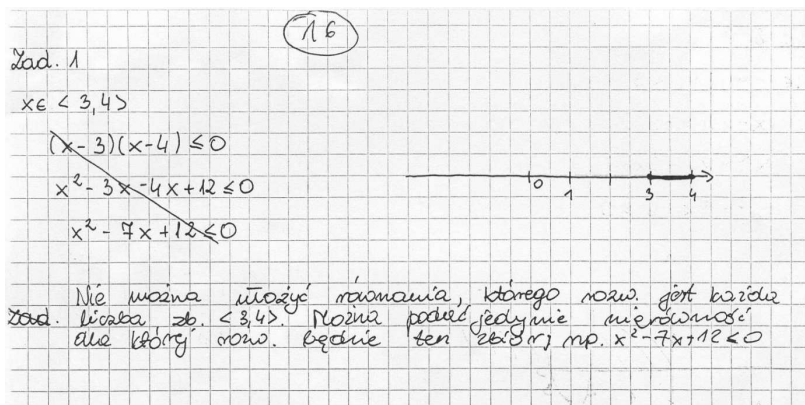 16
Zad. 1
x∈ <3,4>
(x-3)(x-4) ≤ 0
x² - 3x - 4x + 12 ≤ 0
x² - 7x + 12 ≤ 0
0 1 3 4
Nie można ułożyć równania, którego rozw. jest każda
Zad. liczba zb. <3,4>. Można podać jedynie nierówność
dla której rozw. będzie ten zbiór, np. x²-7x+12 ≤ 0